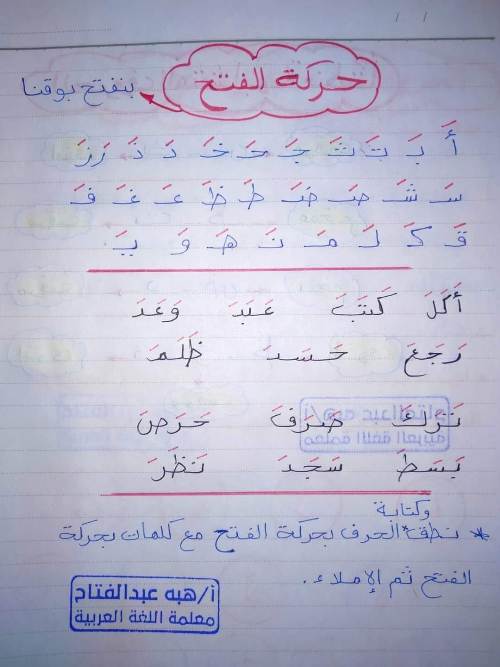 حركة الفتح
بنفتح بوقنا
أَ بَ تَ ثَ جَ حَ خَ دَ ذَ رَ زَ
سَ شَ صَ ضَ طَ ظَ عَ غَ فَ
قَ كَ لَ مَ نَ هَ وَ يَ
أَكَلَ كَتَبَ عَبَدَ وَعَدَ
رَجَعَ حَسَدَ ظَلَمَ
تَرَكَ صَرَفَ حَرَصَ
بَسَطَ سَجَدَ نَظَرَ
وكتابة
* نطق الحرف بحركة الفتح مع كلمات بحركة
الفتح ثم الإملاء.
أ/هبه عبدالفتاح
معلمة اللغة العربية